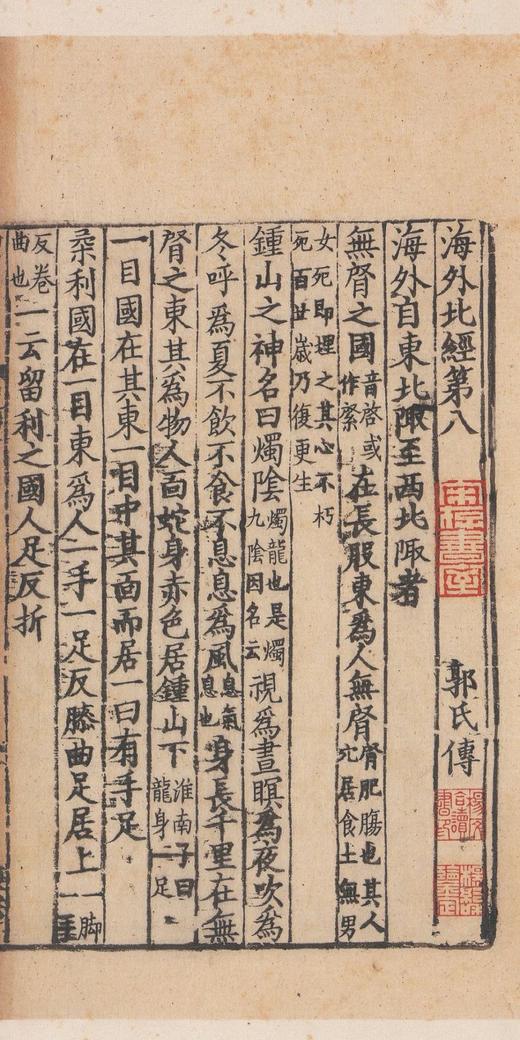 海外北經第八 宋存書室 郭氏傳
海外自東北陬至西北陬者
無䏿之國音啓或作綮在長股東爲人無䏿䏿肥膓也其人穴居食土無男
女死即埋之其心不朽死百廿歲乃復更生
鍾山之神名曰燭陰燭龍也是燭九陰因名云視爲晝瞑爲夜吹爲
冬呼爲夏不飲不食不息息爲風息氣息也身長千里在無
䏿之東其爲物人面蛇身赤色居鍾山下淮南子曰龍身一足
一目國在其東一目中其面而居一曰有手足
桒利國在一目東爲人一手一足反膝曲足居上一脚一手
反卷曲也一云留利之國人足反折